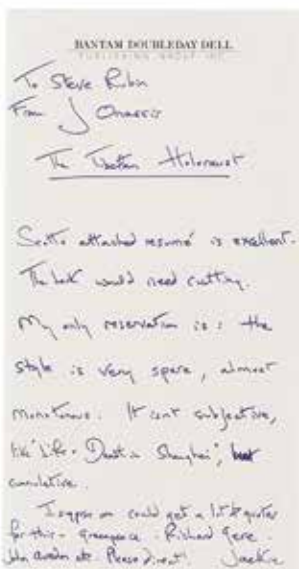 BANTAM DOUBLEDAY DELL
PUBLISHING GROUP, INC.
To Steve Rubin
From J Onassis
The Tibetan Holocaust
attached resumé is excellent.
The book would need cutting.
My only reservation is: the
style is very spare, almost
monotonous. It isnt subjective,
like "Life + Death in Shanghai", but
cumulative.
I suppose one could get a lot of quotes
for this - greenpeace. Richard Gere.
John Avedon etc. Please direct! Jackie